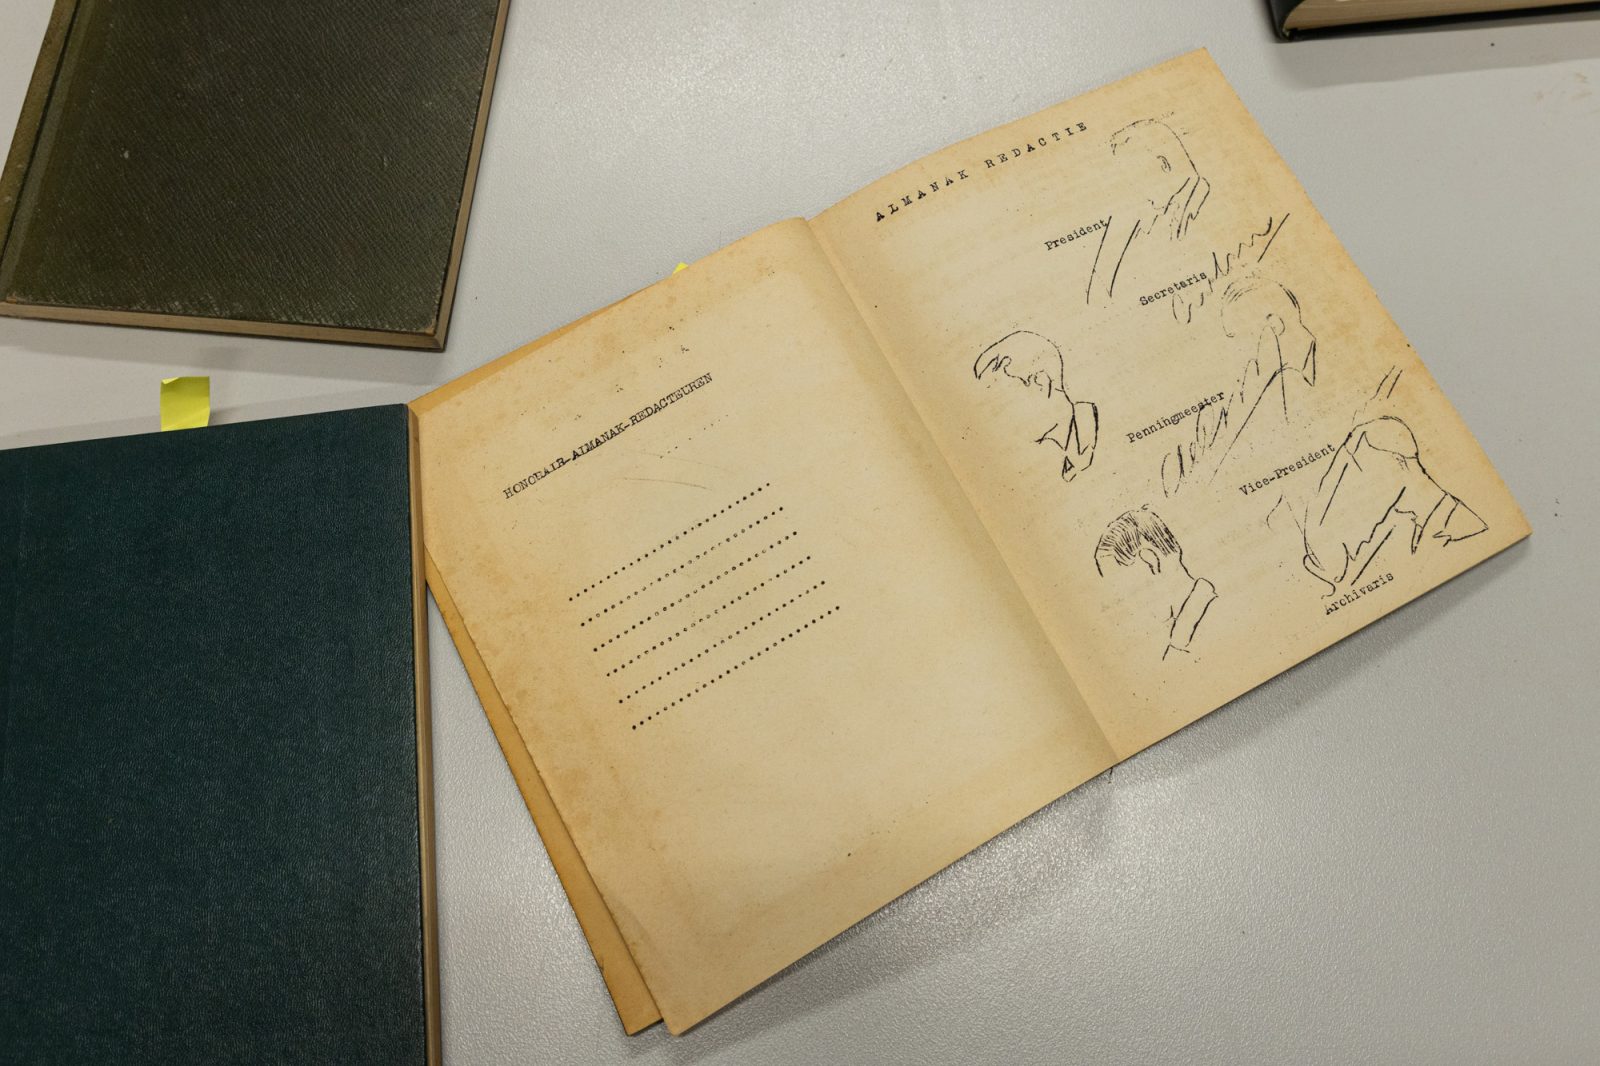 HONORAIR-ALMANAK-REDACTEUREN
ALMANAK REDACTIE
President
Secretaris
Penningmeester
Vice-President
Archivaris